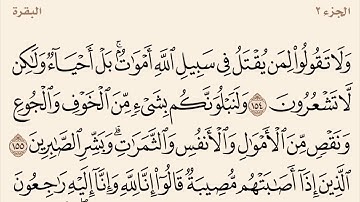 الجزء ٢ البقرة
وَلَا تَقُولُوا۟ لِمَن يُقْتَلُ فِى سَبِيلِ ٱللَّهِ أَمْوَٰتٌۢ ۚ بَلْ أَحْيَآءٌ وَلَٰكِن
لَّا تَشْعُرُونَ ١٥٤ وَلَنَبْلُوَنَّكُم بِشَىْءٍ مِّنَ ٱلْخَوْفِ وَٱلْجُوعِ
وَنَقْصٍ مِّنَ ٱلْأَمْوَٰلِ وَٱلْأَنفُسِ وَٱلثَّمَرَٰتِ ۗ وَبَشِّرِ ٱلصَّٰبِرِينَ ١٥٥
ٱلَّذِينَ إِذَآ أَصَٰبَتْهُم مُّصِيبَةٌ قَالُوٓا۟ إِنَّا لِلَّهِ وَإِنَّآ إِلَيْهِ رَٰجِعُونَ